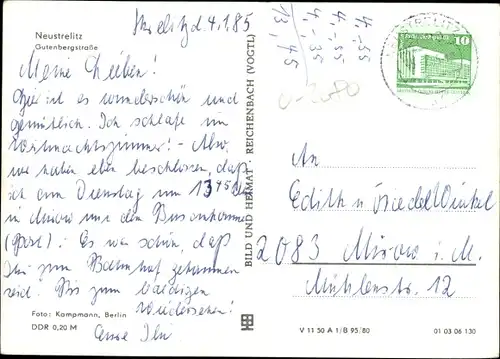 Neustrelitz
Gutenbergstraße
Strelitz d. 4.1.85
Meine Lieben!
Hier ist es wunderschön und
gemütlich. Ich schlafe im
Weihnachtszimmer! - Also,
wir haben eben beschlossen, daß
ich am Dienstag um 13 45
in Mirow mit dem Bus ankomme
(Post). Es war schön, daß
Ihr zum Bahnhof gekommen
seid! Bis zum baldigen
Wiedersehen!
Eure
Foto: Kampmann, Berlin
DDR 0,20 M
BILD UND HEIMAT REICHENBACH (VOGTL)
4,-55
4,-55
4,-35
13,45
10
An
Edith u. Winkel
2083 Mirow i. M.
Mühlenstr. 12
V 11 50 A 1/B 95/80
01 03 06 130